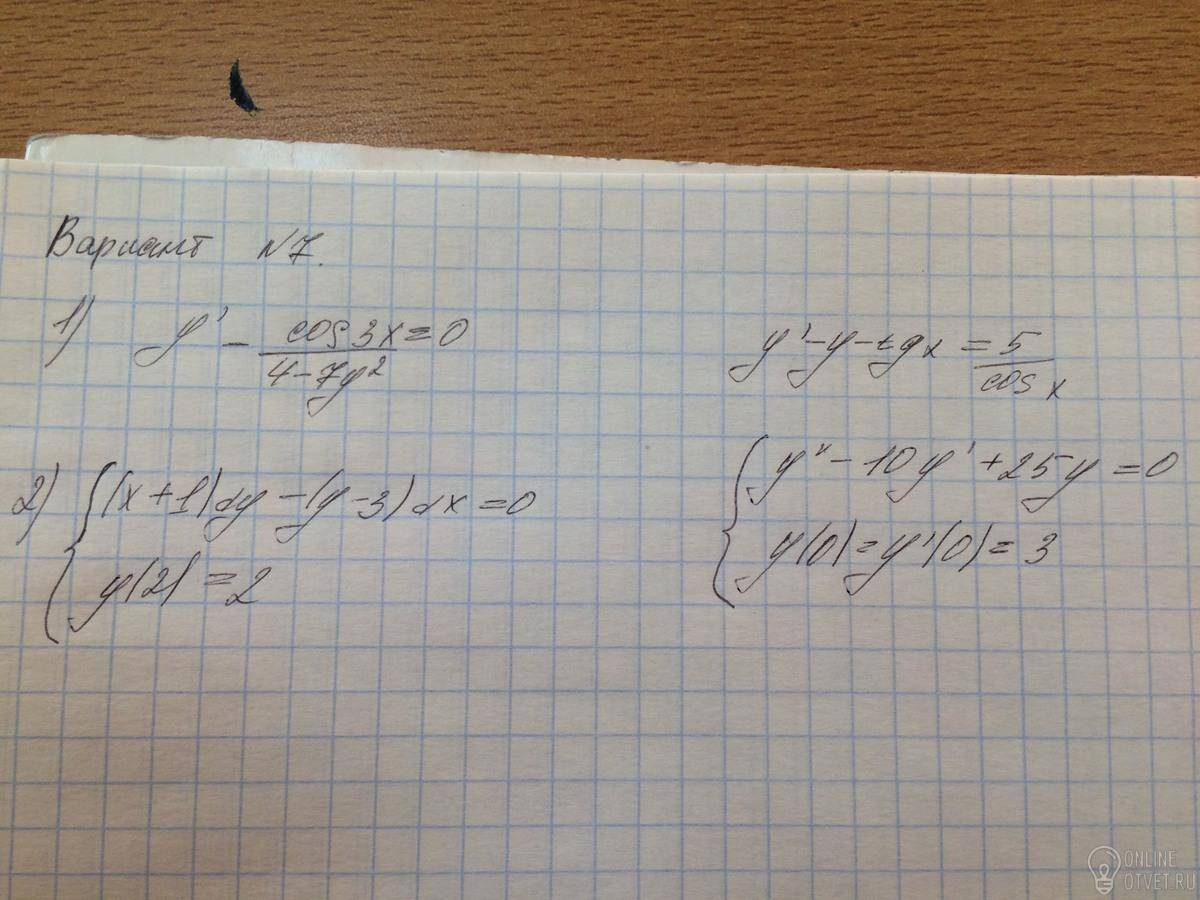 Вариант №7.
1) y' - cos 3x / 4-7y² = 0
y' - y - tg x = 5 / cos x
2) { (x+1)dy - (y-3)dx = 0
y(2) = 2
{ y'' - 10y' + 25y = 0
y(0) = y'(0) = 3
ONLINE
OTVET.RU